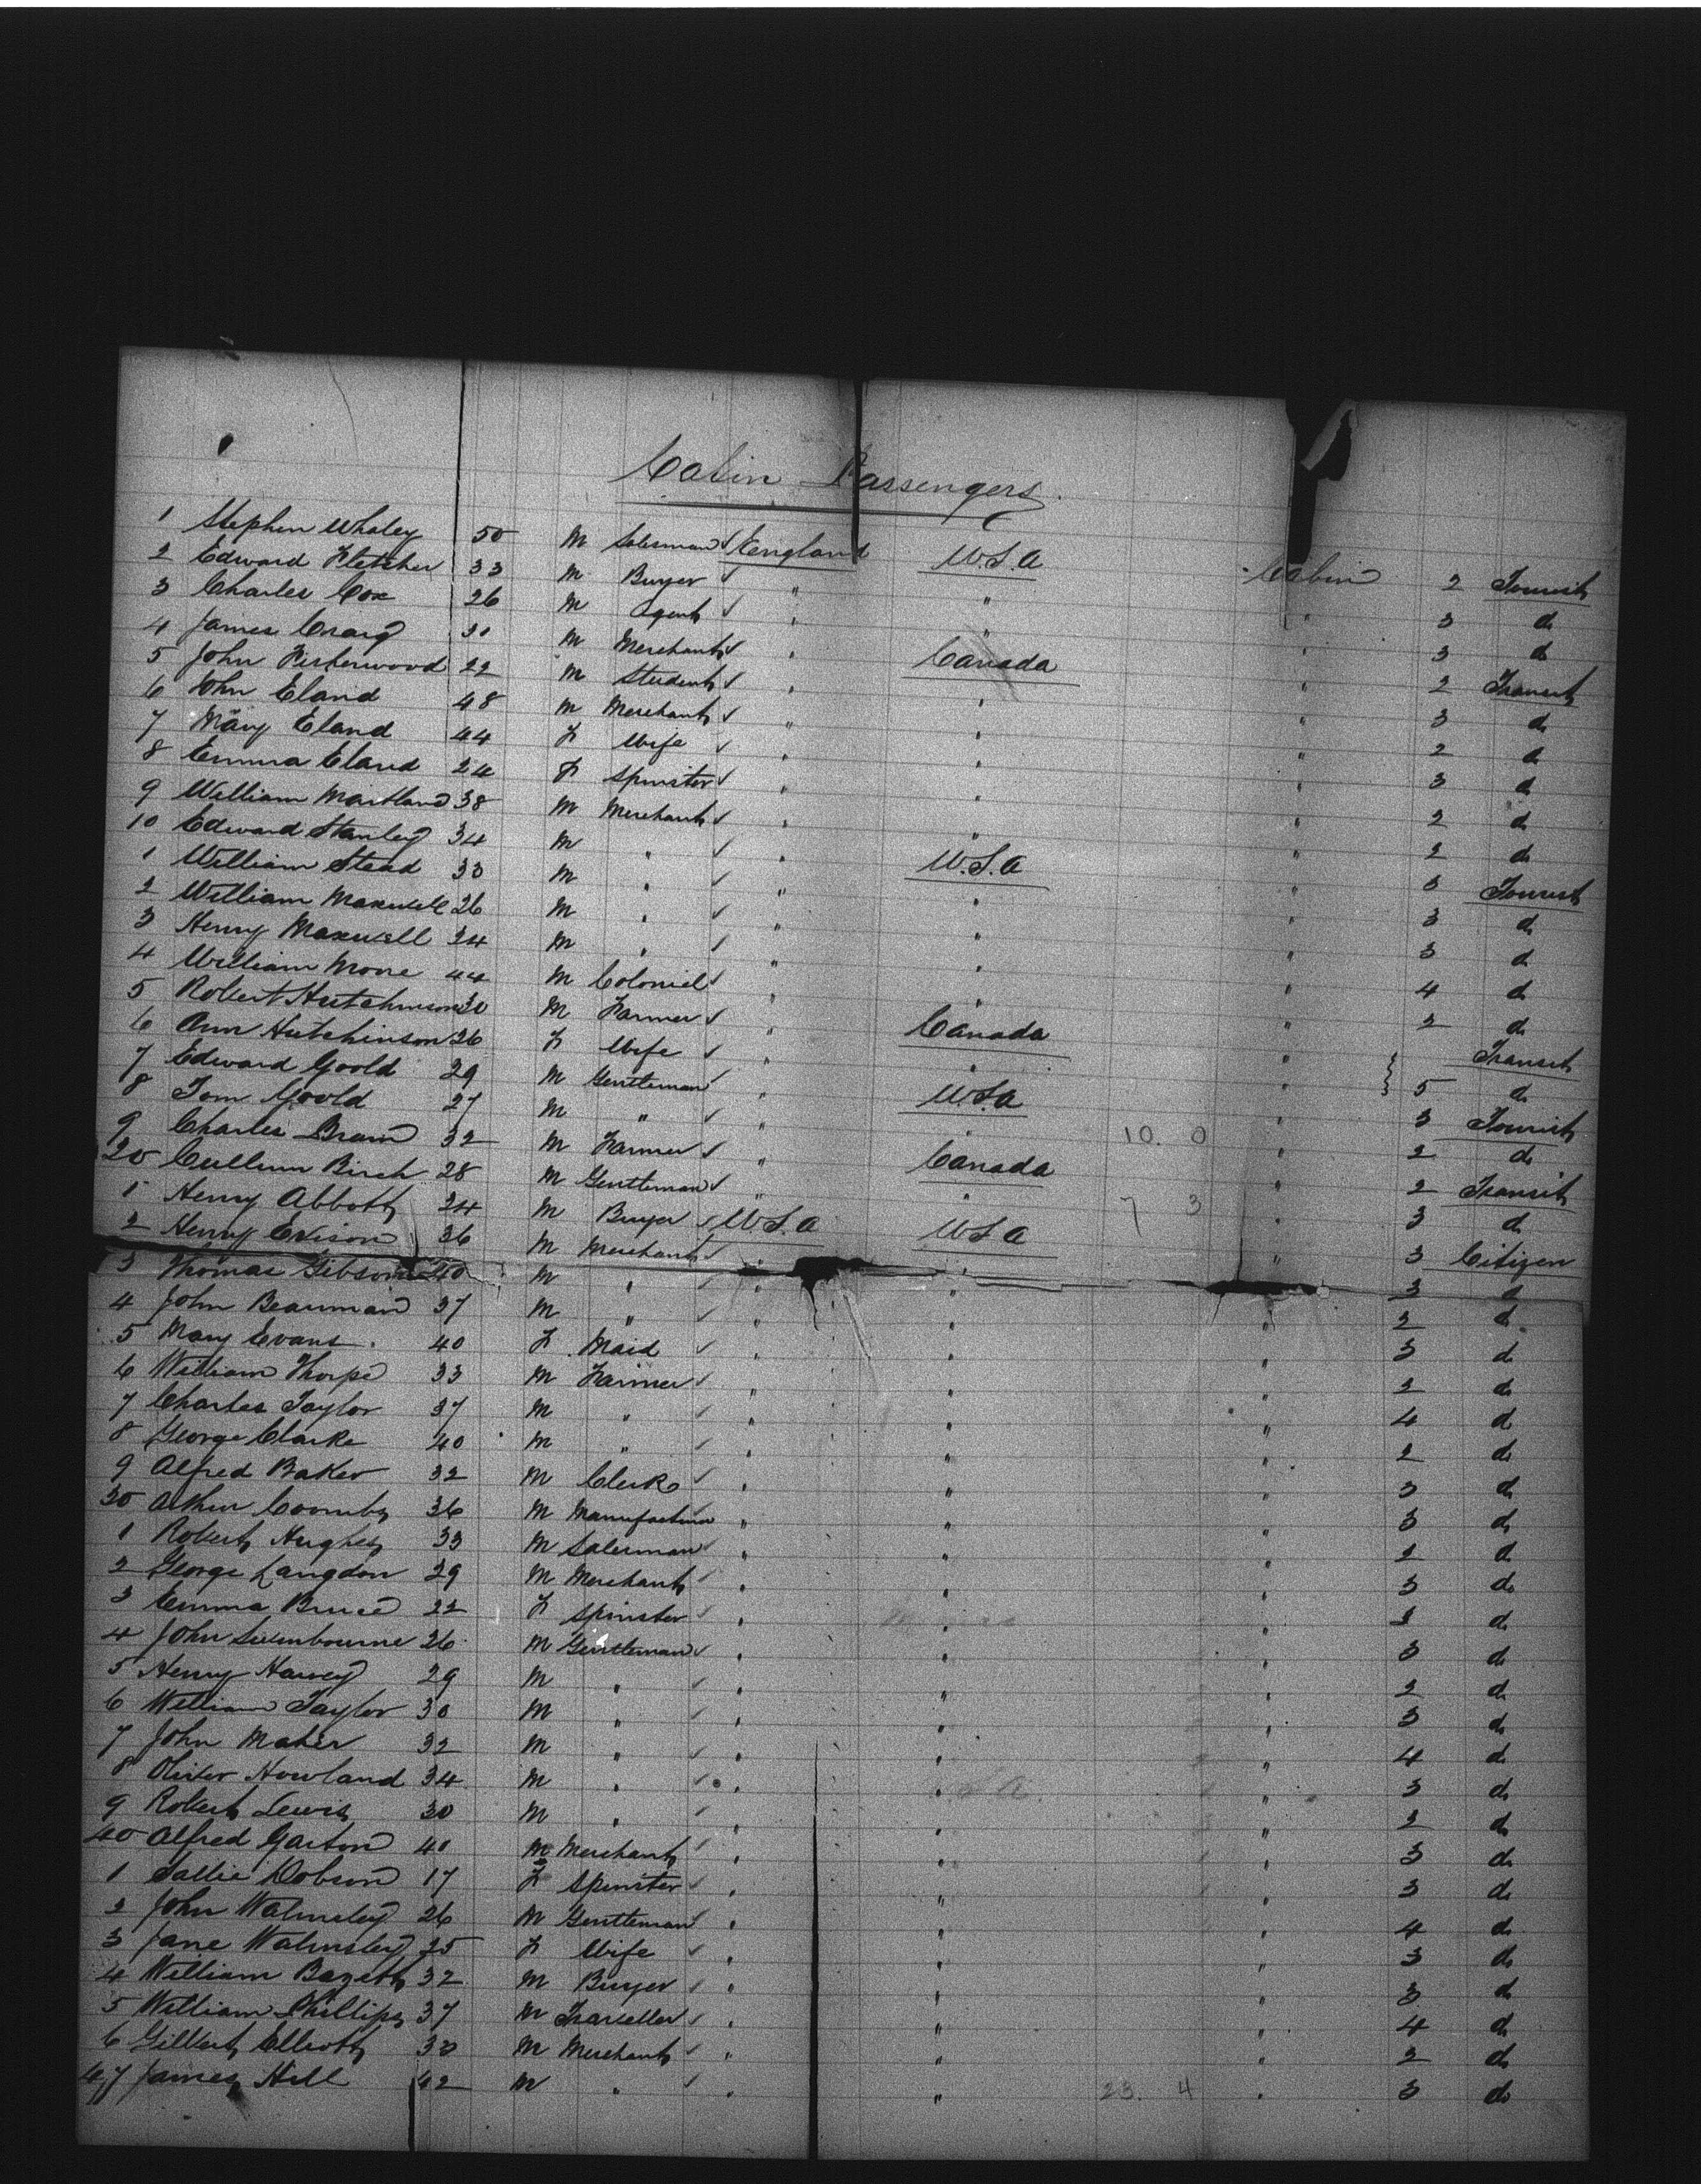 Cabin Passengers
1 Stephen Whaley 50 M Salesman ✓ England U.S.A Cabin 2 Tourist
2 Edward Fletcher 33 M Buyer ✓ " " " 3 do
3 Charles Cox 26 M Agent ✓ " " " 3 do
4 James Craig M Merchant ✓ " Canada " 2 Transit
5 John Fisherwood 22 M Student ✓ " " " 3 do
6 John Eland 48 M Merchant ✓ " " " 2 do
7 Mary Eland 44 F Wife ✓ " " " 3 do
8 Emma Eland 24 F Spinster ✓ " " " 2 do
9 William Maitland 38 M Merchant ✓ " " " 2 do
10 Edward Stanley 34 M " ✓ " U.S.A " 3 Tourist
1 William Stead 33 M " ✓ " " " 3 do
2 William Maxwell 26 M " ✓ " " " 3 do
3 Henry Maxwell 34 M " ✓ " " " 4 do
4 William Moore 44 M Colonel ✓ " " " 2 do
5 Robert Hutchinson 30 M Farmer ✓ " Canada " Transit
6 Ann Hutchinson 26 F Wife ✓ " " " 5 do
7 Edward Goold 29 M Gentleman ✓ " U.S.A " 3 Tourist
8 Tom Goold 27 M " ✓ " " 10. 0 " 2 do
9 Charles Brain 32 M Farmer ✓ " Canada " 2 Transit
20 Cullum Birch 28 M Gentleman ✓ " " 7 3 " 3 do
1 Henry Abbott 24 M Buyer ✓ U.S.A U.S.A " 3 Citizen
2 Henry Evison 36 M Merchant ✓ " " 3 do
3 Thomas Gibson 40 M " ✓ " " " 2 do
4 John Beauman 37 M " ✓ " " " 3 do
5 Mary Evans 40 F Maid ✓ " " " 2 do
6 William Thorpe 33 M Farmer ✓ " " " 4 do
7 Charles Taylor 37 M " ✓ " " " 2 do
8 George Clarke 40 M " ✓ " " " 3 do
9 Alfred Baker 32 M Clerk ✓ " " " 3 do
30 Arthur Coombs 36 M Manufacturer " " " 2 do
1 Robert Hughes 33 M Salesman ✓ " " " 3 do
2 George Langdon 29 M Merchant ✓ " " " 3 do
3 Emma Bruce 22 F Spinster ✓ " " " 3 do
4 John 26 M Gentleman ✓ " " " 2 do
5 Henry Harvey 29 M " ✓ " " " 3 do
6 William Taylor 30 M " ✓ " " " 4 do
7 John Maher 32 M " ✓ " " " 3 do
8 Oliver Howland 34 M " ✓ " " " 2 do
9 Robert Lewis 30 M " ✓ " " " 3 do
40 Alfred Garton 40 M Merchant ✓ " " " 3 do
1 Sallie Dobson 17 F Spinster ✓ " " " 4 do
2 John Walmsley 26 M Gentleman ✓ " " " 3 do
3 Jane Walmsley 25 F Wife ✓ " " " 3 do
4 William Bazett 32 M Buyer ✓ " " " 4 do
5 William Phillips 37 M Traveller ✓ " " " 2 do
6 Gilbert Elliott M Merchant ✓ " " " 3 do
47 James Hill 42 M " ✓ " " 23. 4 "